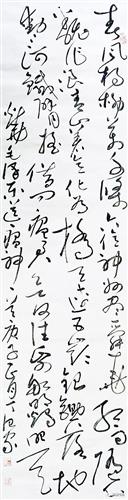 春风杨柳万千条六亿神州尽舜尧红雨随心
翻作浪青山着意化为桥天连五岭银锄落地
动三河铁臂摇借问瘟君欲何往纸船明烛照天
烧 毛泽东送瘟神 庚子